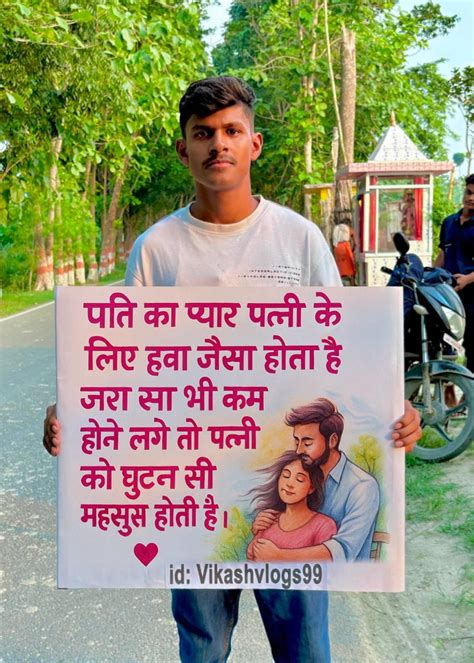 पति का प्यार पत्नी के
लिए हवा जैसा होता है
जरा सा भी कम
होने लगे तो पत्नी
को घुटन सी
महसुस होती है।
id: Vikashvlogs99